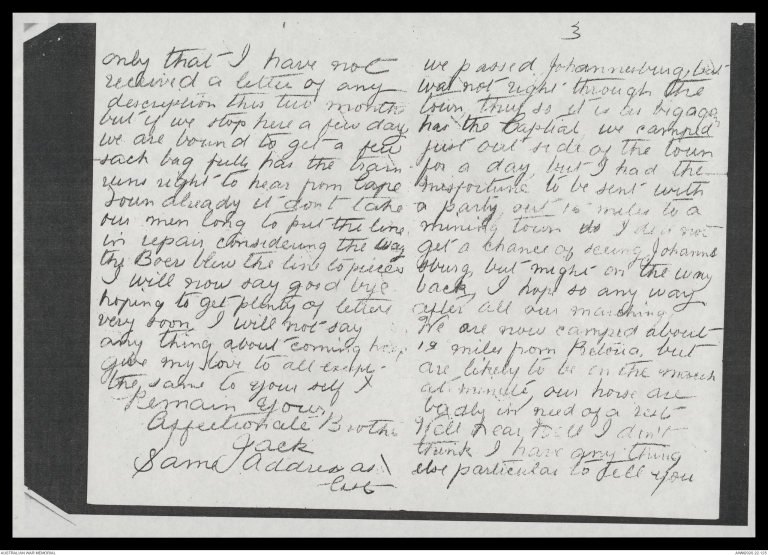 3
we passed Johannesburg, but
was not right through the
town, tho, so it is as big
has the Captial, we camped
just out side of the town
for a day, but I had the
misfortune to be sent with
a party, out 15 miles to a
mining town so I did not
get a chance of seeing Johanns
burg, but might on the way
back, I hope so any way
after all our marching.
We are now camped about
18 miles from Pretoria, but
are likely to be on the march
at minute, our horse are
badly in need of a rest
Well Dear Bill I don't
think I have any thing
else particular to tell you
only that I have not
received a letter of any
description this two months
but if we stop here a few day
we are bound to get a few
sack bag fulls has the train
runs right to hear from Cape
Toun already it dont take
our men long to put the line
in repair considering the way
the Boers blew the line to pieces
I will now say good bye
hoping to get plenty of letters
very soon, I will not say
any thing about coming home
give my love to all except
the same to your self I
Remain Your
Affectionate Brother
Jack
Same Address as
last
AUSTRALIAN WAR MEMORIAL